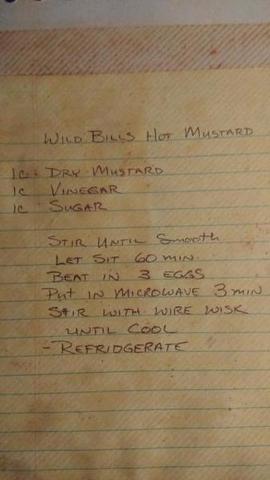 WILD BILLS HOT MUSTARD
1C. DRY MUSTARD
1C VINEGAR
1C SUGAR
STIR UNTIL Smooth
LET SIT 60 MIN.
BEAT IN 3 EGGS
PUt IN MICROWAVE 3 MIN
StIR WITH WIRE WISK
UNTIL COOL
- REFRIDGERATE